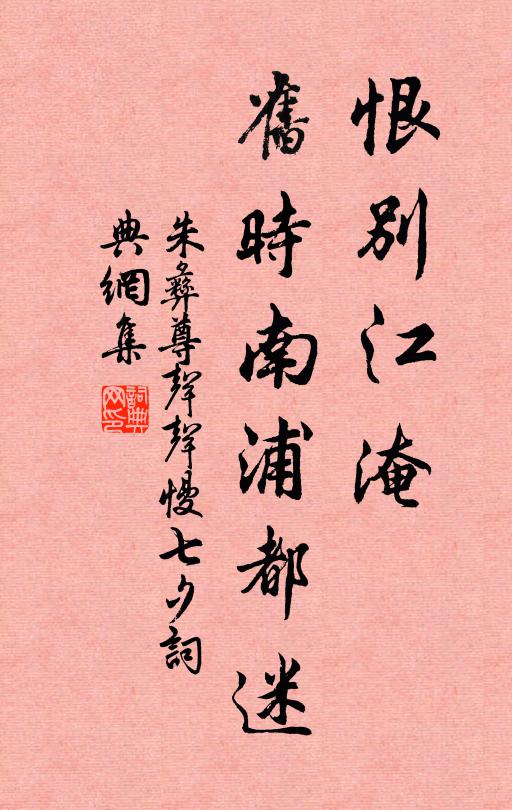 恨別江淹
舊時南浦都迷
朱彝尊聲聲慢七夕詞
典網集
詞典网印